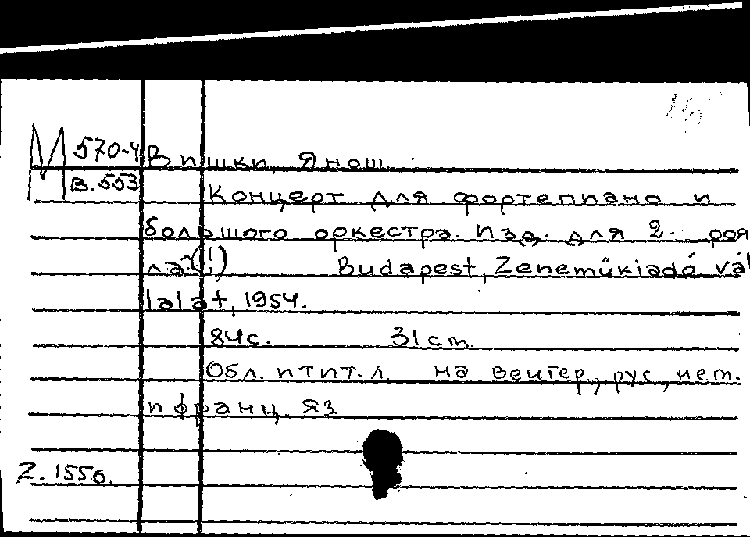 М 570-4 Вишки, Янош.
В.553
Концерт для фортепиано и
большого оркестра. Изд. для 2 роя
ла.(!) Budapest, Zeneműkiadó vál
lalat, 1954.
84 с. 31 cm.
Обл. и тит. л. на венгер., рус., нем.
и франц. яз
Z. 1556.